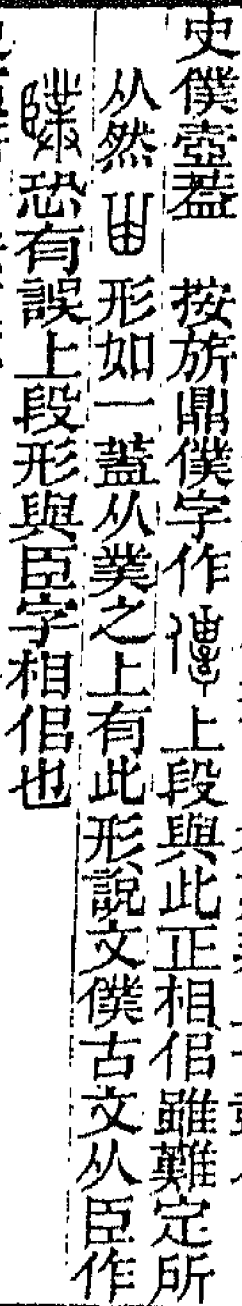 史僕壺葢　按旂鼎僕字作上段與此正相侣雖難定所
从然形如一蓋从菐之上有此形說文僕古文从臣作
䑑恐有誤上段形與臣字相侣也